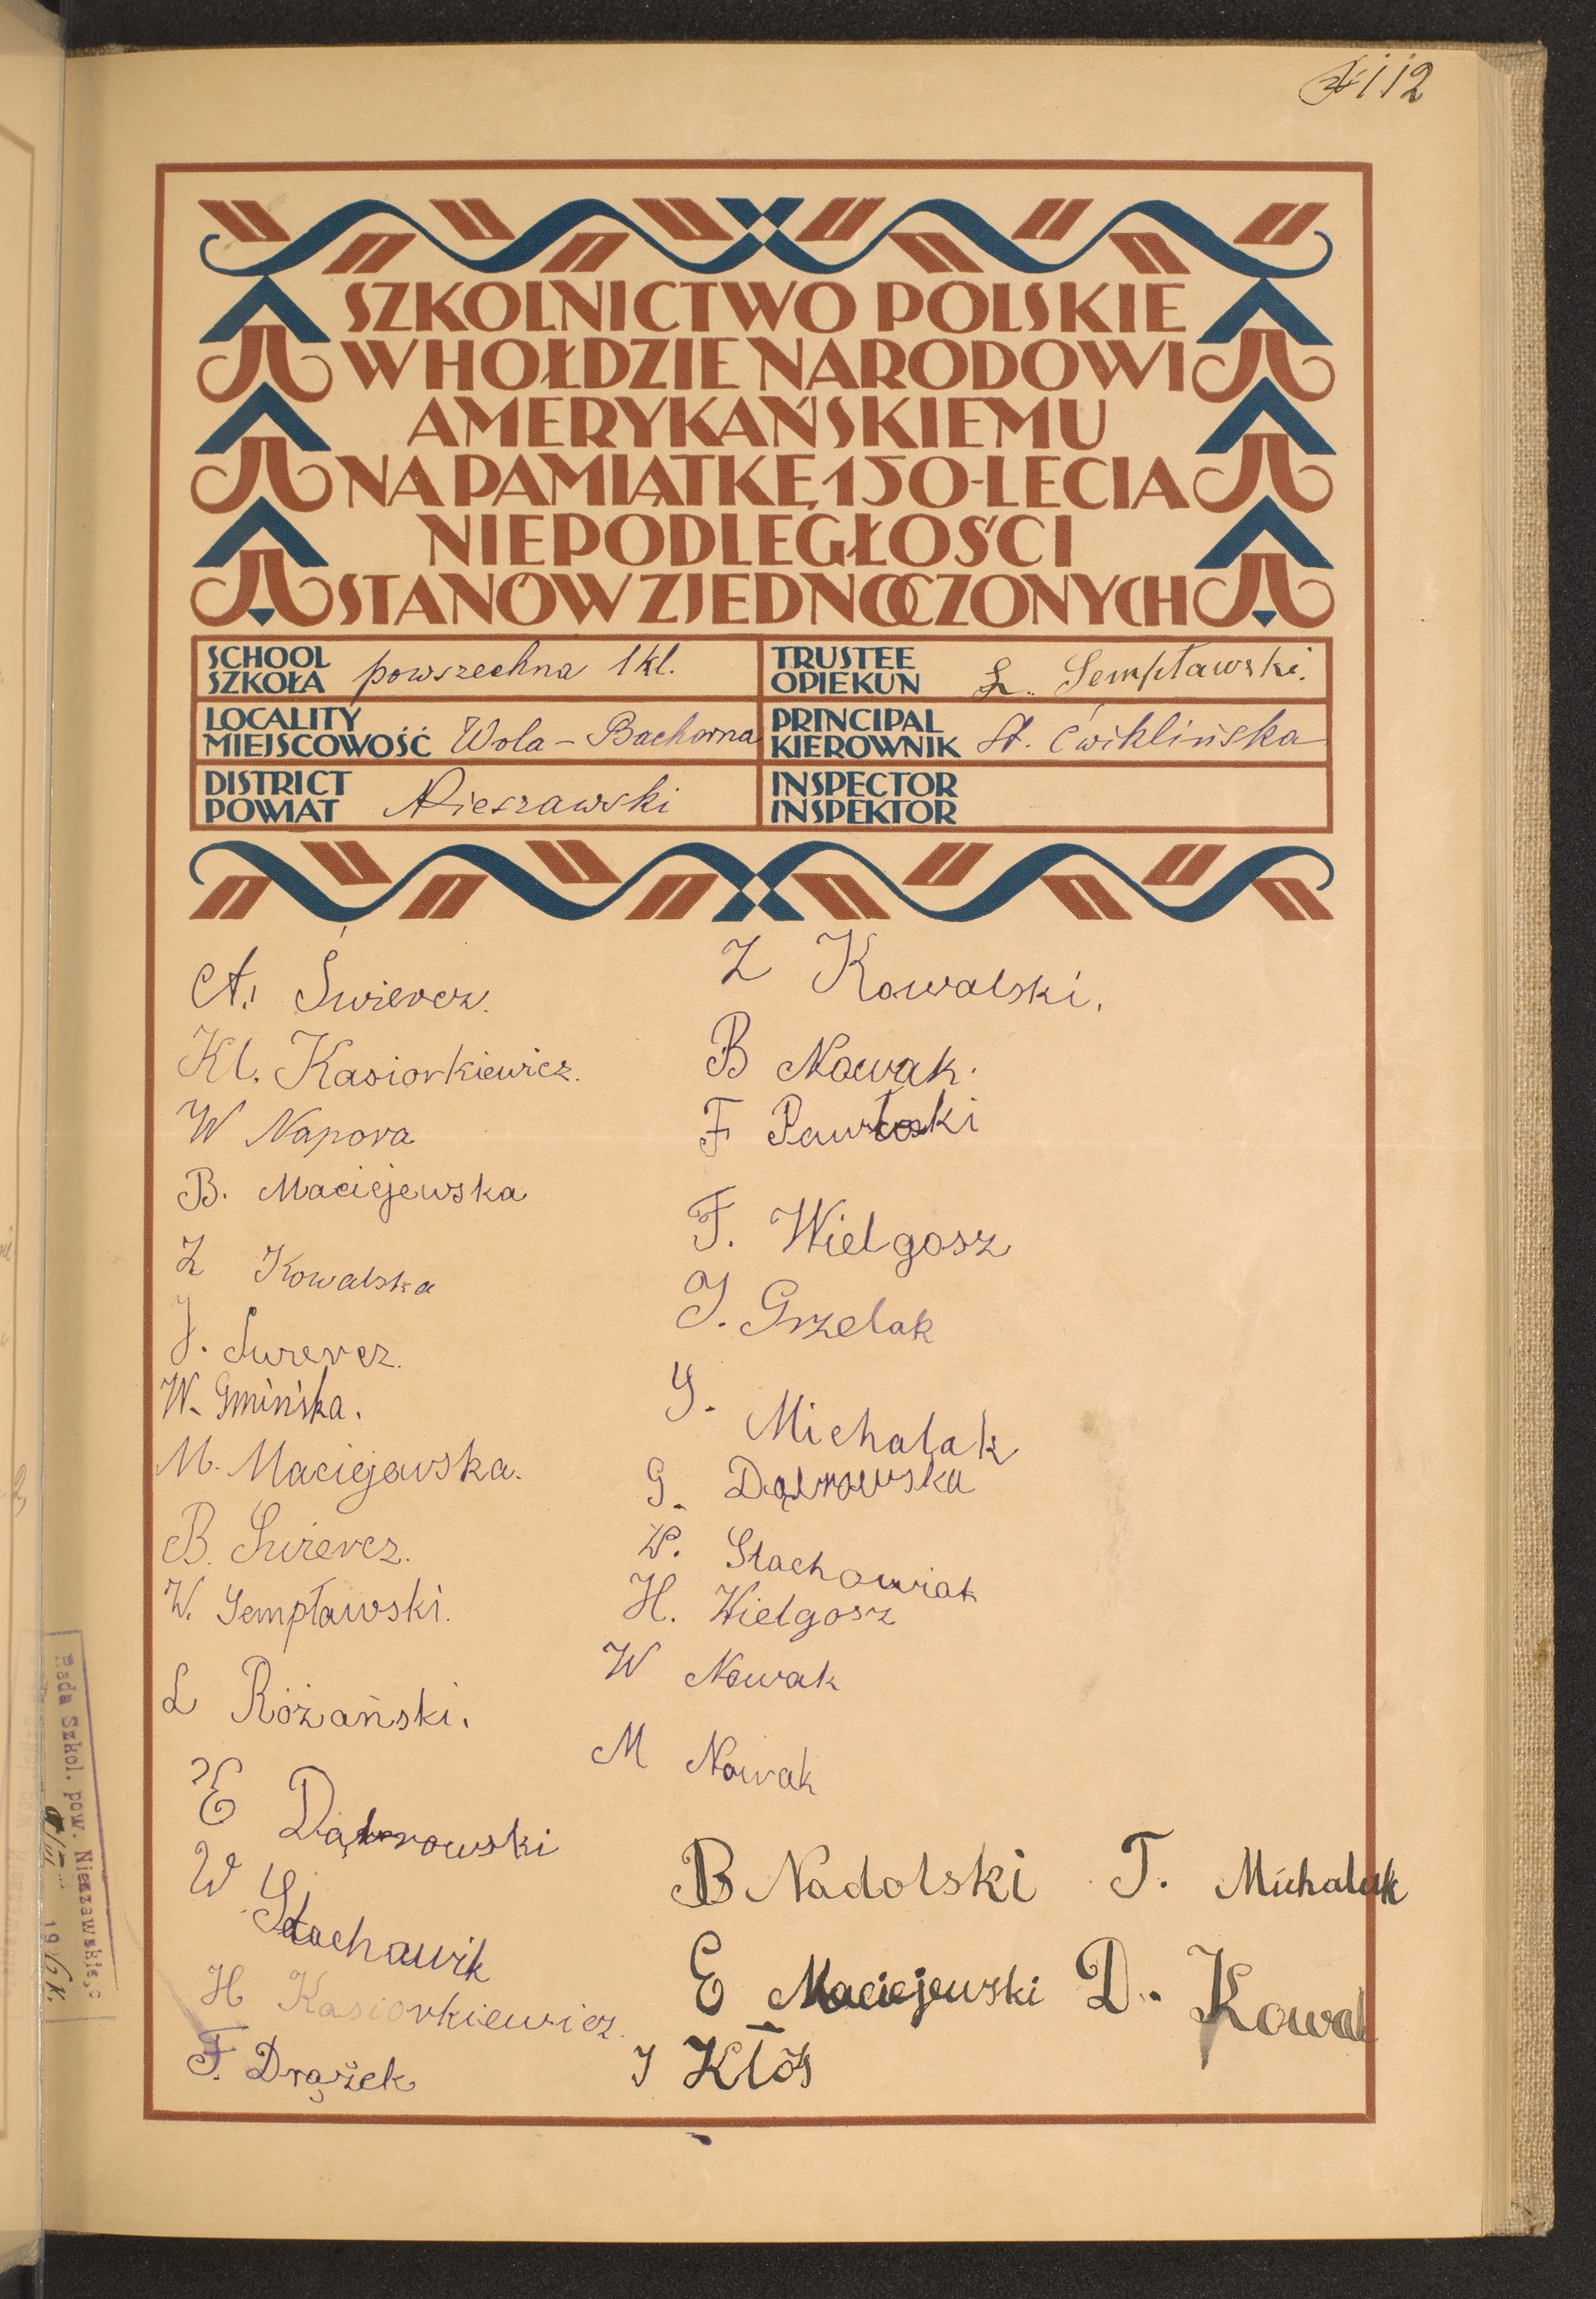 112
SZKOLNICTWO POLSKIE
W HOŁDZIE NARODOWI
AMERYKAŃSKIEMU
NA PAMIĄTKĘ 150-LECIA
NIEPODLEGŁOŚCI
STANÓW ZJEDNOCZONYCH
SCHOOL
SZKOŁA powszechna 1 kl.
TRUSTEE
OPIEKUN Sempławski.
LOCALITY
MIEJSCOWOŚĆ Wola - Bachorna
PRINCIPAL
KIEROWNIK St. Ćwiklińska
DISTRICT
POWIAT Nieszawski
INSPECTOR
INSPEKTOR
A. Świercz.
Kl. Kasiorkiewicz.
W Napora
B. Maciejewska
Z Kowalska
J. Świercz.
W. Gmińska.
M. Maciejewska.
B. Świercz.
W. Sempławski.
L Różański.
E Dąbrowski
W Stachawik
H Kasiorkiewicz.
F. Drążek
Z Kowalski.
B Nowak.
F Pawłoski
F. Wielgosz
J. Grzelak
J. Michalak
G. Dąbrowska
W. Stachowiak
H. Wielgosz
W Nowak
M Nowak
B Nadolski T. Michalak
E Maciejewski D. Kowal
J Kłós
Rada Szkol. pow. Nieszawskie